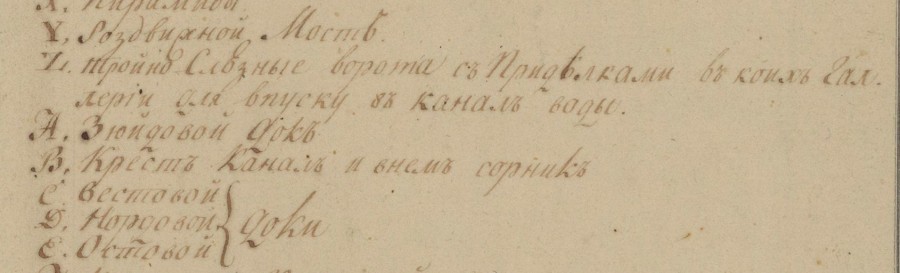 X. Пирамиды.
Y. Роздвижной Мостъ.
Z. тройнѣ Слюзные ворота съ Придѣлками въ коихъ Гал-
лереи для впуску въ каналъ воды.
A. Зюйдовой Докъ
B. Крестъ Каналъ и внемъ сорникъ
C. Вестовой
D. Нордовой } доки
E. Остовой